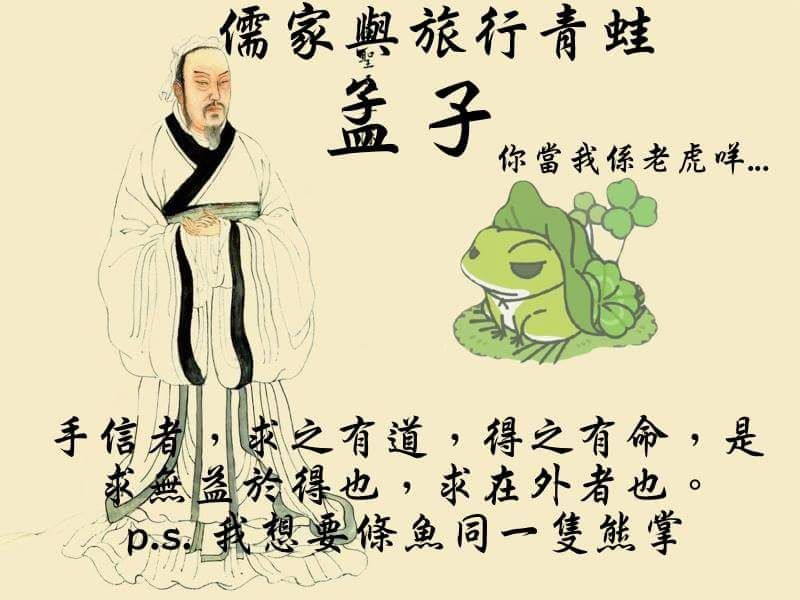 儒家與旅行青蛙
聖
孟子
你當我係老虎咩...
手信者，求之有道，得之有命，是
求無益於得也，求在外者也。
p.s. 我想要條魚同一隻熊掌